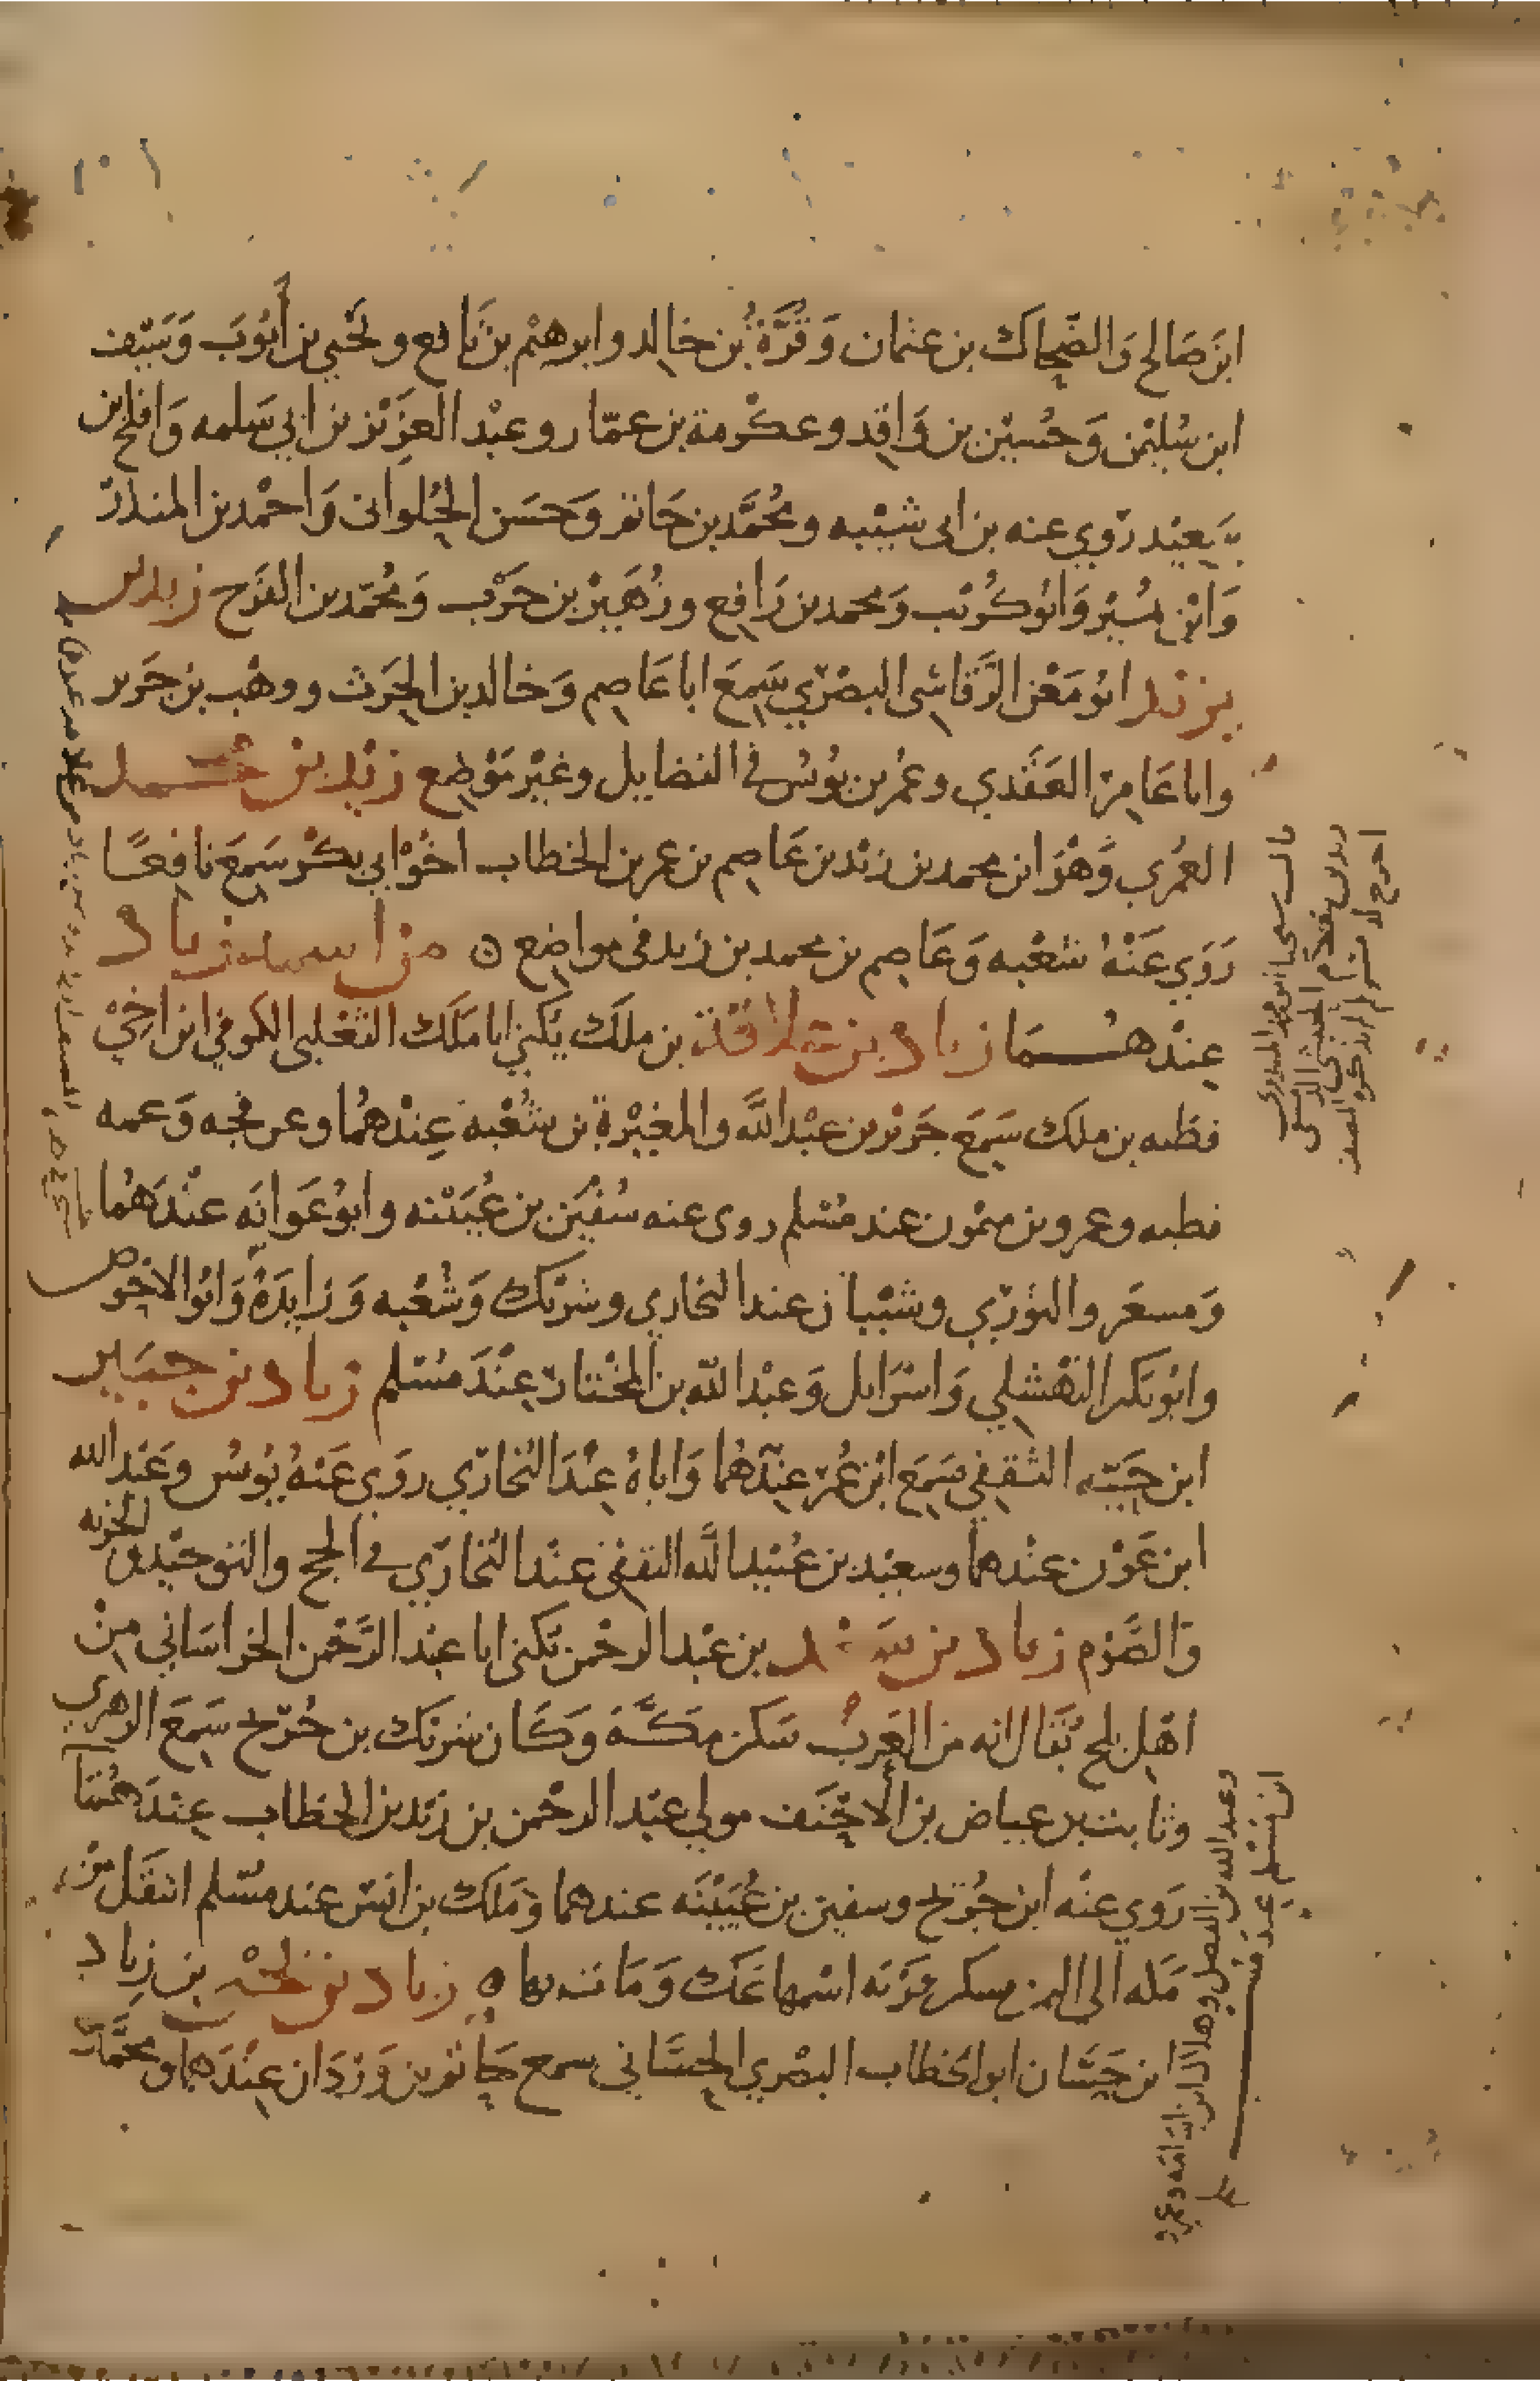 ابن صالح والضحاك بن عثمان وقرة بن خالد وابرهيم بن نافع ويحيي بن أيوب وسيف
ابن سليمن وحسين بن واقد وعكرمة بن عمار وعبد العزيز بن ابي سلمه وافلح بن
سعيد روي عنه بن ابي شيبه ومحمد بن حاتم وحسن الحلواني واحمد بن المنذر
وابن نمير وابو كريب ومحمد بن رافع وزهير بن حرب ومحمد بن الفرج زيد بن
يزيد ابو معن الرقاشي البصري سمع ابا عاصم وخالد بن الحرث ووهب بن جرير
وابا عامر العقدي وعمر بن يونس في الفضايل وغير موضع زيد بن محمد
العمري وهو ابن محمد بن زيد بن عاصم بن عمر بن الخطاب اخو ابي بكر سمع نافعا
روي عنه شعبه وعاصم بن محمد بن زيد في مواضع ه من اسمه زياد
عندهما زياد بن علاقة بن ملك يكني ابا ملك الثعلبي الكوفي ابن اخي
قطبه بن ملك سمع جرير بن عبد الله والمغيرة بن شعبة عندهما وعرفجه وعمه
قطبه وعمرو بن ميمون عند مسلم روي عنه سفين بن عيينه وابو عوانه عندهما
ومسعر والثوري وشيبان عند البخاري وشريك وشعبه وزايدة وابو الاحوص
وابو بكر النهشلي واسرايل وعبد الله بن المختار عند مسلم زياد بن جبير
ابن حيه الثقفي سمع ابن عمر عندهما واباه عند البخاري روي عنه يونس وعبد الله
ابن عون عندهما وسعيد بن عبيد الله الثقفي عند البخاري في الحج والتوحيد والجزيه
والصوم زياد بن سعد بن عبد الرحمن يكني ابا عبد الرحمن الخراساني من
اهل بلخ يقال انه من العرب سكن مكة وكان شريك بن جريج سمع الزهري
وثابت بن عياض بن الاحنف مولي عبد الرحمن بن زيد بن الخطاب عندهما
روي عنه ابن جريج وسفين بن عيينه عندهما وملك بن انس عند مسلم انتقل من
مكه الي اليمن فسكن قرية اسمها عك ومات بها ه زياد بن يحيى بن زياد
ابن حسان ابو الخطاب البصري الحساني سمع حاتم بن وردان عندهما ومحمد